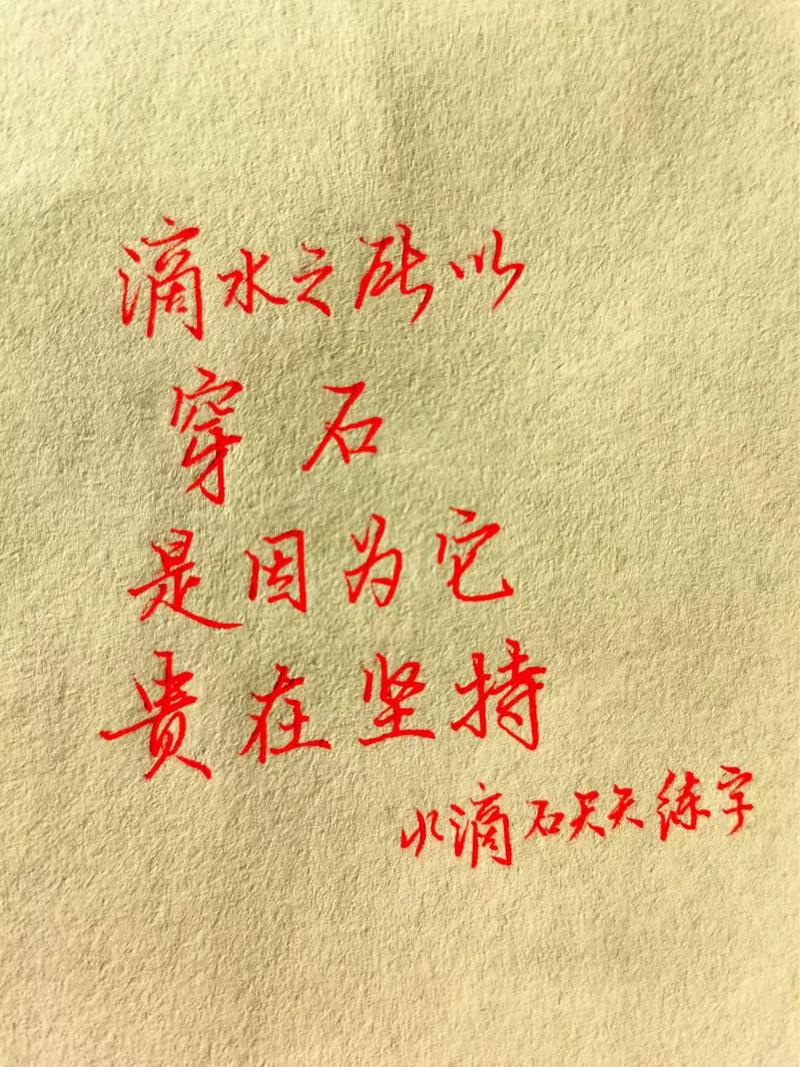 滴水之所以
穿石
是因为它
貴在坚持
水滴石天天练字